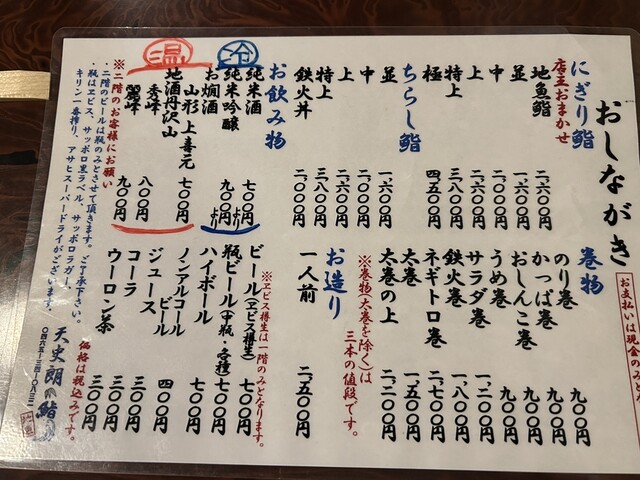 おしながき
お支払いは現金のみ
にぎり鮨
店主おまかせ
地魚鮨 二、六〇〇円
並 一、六〇〇円
中 二、〇〇〇円
上 二、六〇〇円
特上 三、八〇〇円
極 四、五〇〇円
ちらし鮨
並 一、六〇〇円
中 二、〇〇〇円
上 二、六〇〇円
特上 三、八〇〇円
鉄火丼 二、〇〇〇円
お飲み物
冷
純米酒 七〇〇円
純米吟醸 九〇〇円
温
お燗酒
山形 上喜元 七〇〇円
地酒丹沢山
秀峰 八〇〇円
麗峰 九〇〇円
巻物
のり巻 九〇〇円
かっぱ巻 九〇〇円
おしんこ巻 九〇〇円
うめ巻 九〇〇円
サラダ巻 一、二〇〇円
鉄火巻 一、八〇〇円
ネギトロ巻 二、七〇〇円
太巻 一、五〇〇円
太巻の上 二、二〇〇円
※巻物(太巻を除く)は
三本の値段です。
お造り
一人前 二、五〇〇円
※ヱビス樽生は一階のみとなります。
ビール(ヱビス樽生) 七〇〇円
瓶ビール(中瓶・各種) 七〇〇円
ハイボール 七〇〇円
ノンアルコール
ビール 四〇〇円
ジュース 三〇〇円
コーラ 三〇〇円
ウーロン茶 三〇〇円
※二階のお客様にお願い
・二階のビールは瓶のみとさせて頂きます。ご了承下さい。
・瓶はヱビス、サッポロ黒ラベル、サッポロラガー、
キリン一番搾り、アサヒスーパードライがございます。
価格は税込みです。
天史朗の鮨
〇四六五-三四-〇八三二